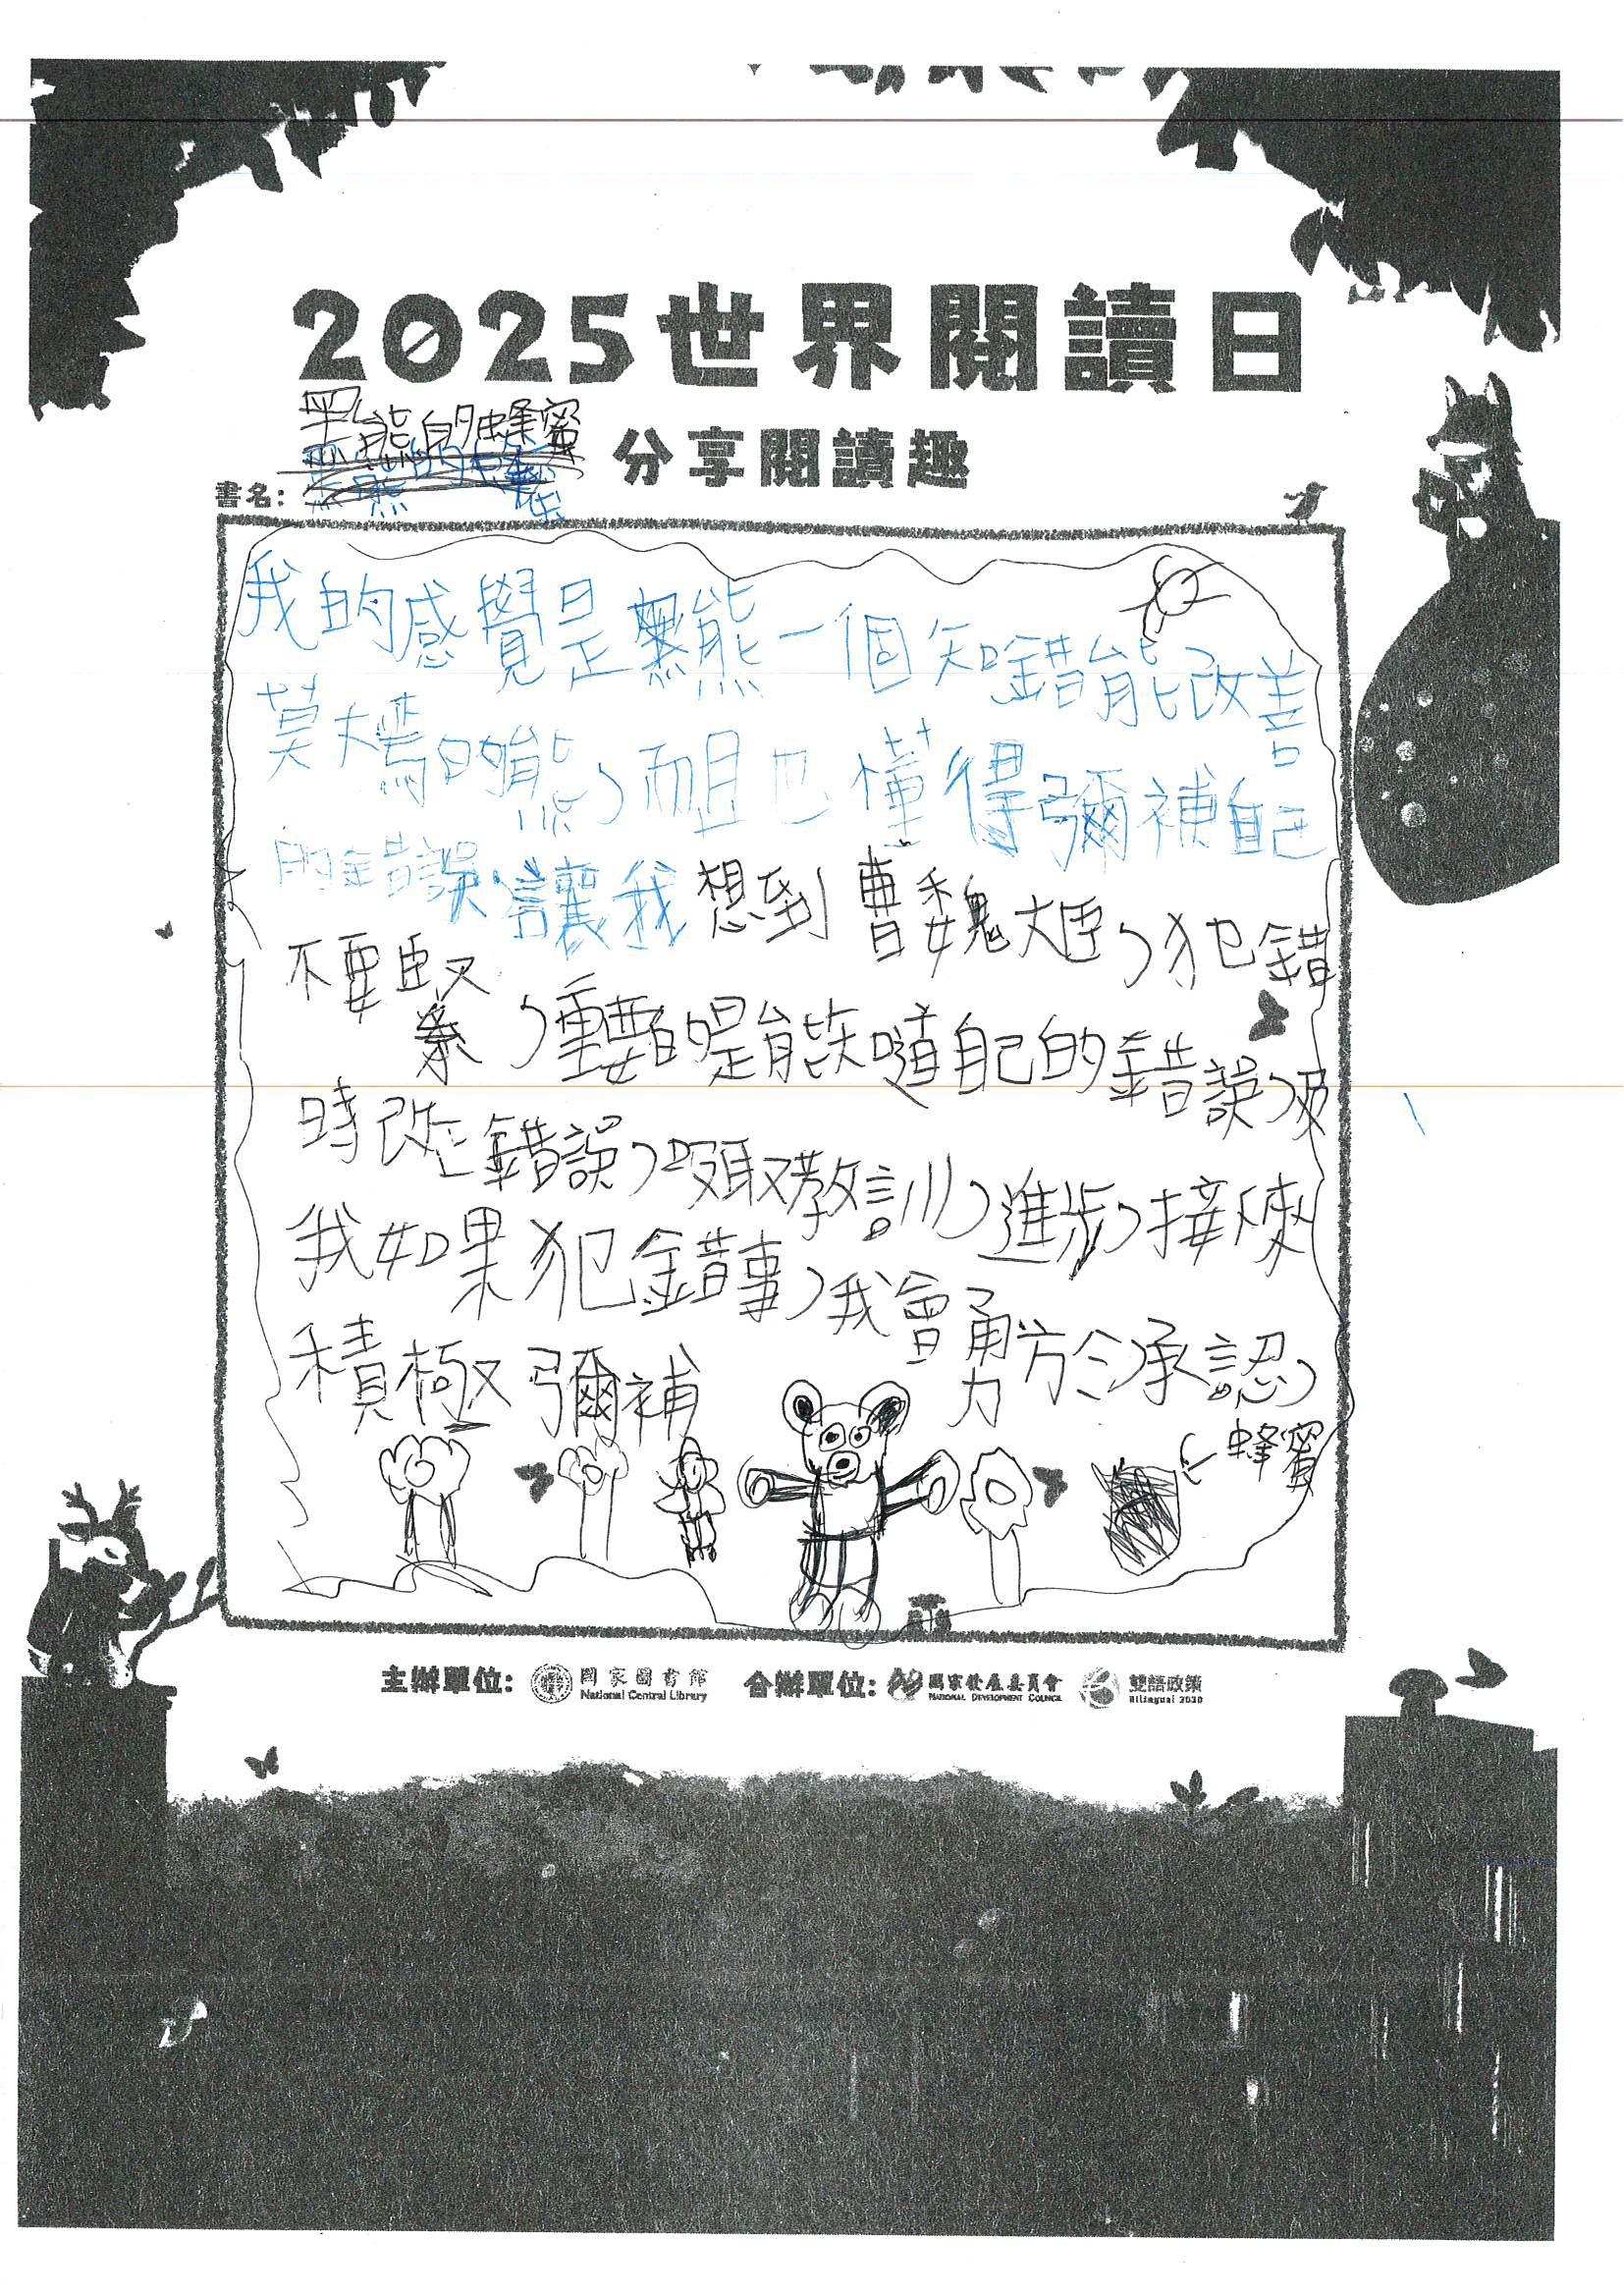 2025世界閱讀日
分享閱讀趣
書名：黑熊的蜂蜜
我的感覺是黑熊一個知錯能改善
莫大焉的熊，而且也懂得彌補自己
的錯誤，讓我想到曹魏大臣，犯錯
不要緊，重要的是能知道自己的錯誤，及
時改正錯誤，吸取教訓，進步，接
我如果犯錯事，我會勇於承認，
積極彌補
蜂蜜
主辦單位：國家圖書館 National Central Library 合辦單位：國家發展委員會 NATIONAL DEVELOPMENT COUNCIL 雙語政策 Bilingual 2030